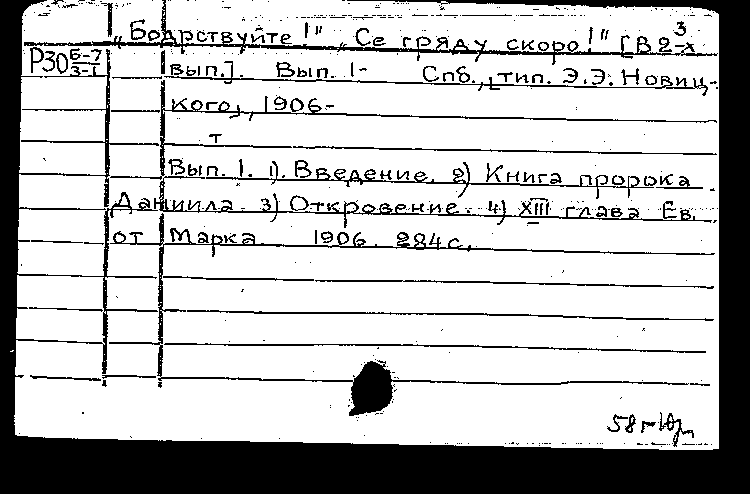 „Бодрствуйте!" „Се гряду скоро!" [В 2-х
3
Р30 Б-7/3-1
вып.]. Вып. 1- Спб., [тип. Э.Э. Новиц-
кого], 1906-
т
Вып. 1. 1). Введение. 2) Книга пророка
Даниила. 3) Откровение. 4) XIII глава Ев.
от Марка. 1906. 284 с.